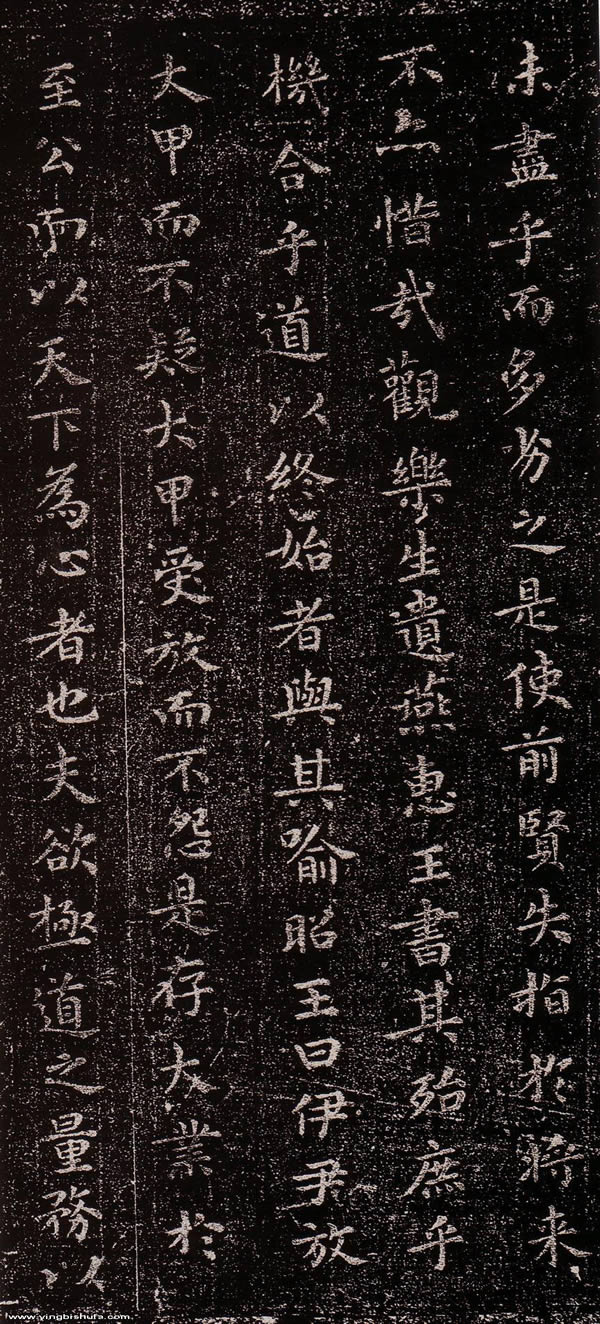 未盡乎而多劣之是使前賢失指於將来
不亦惜哉觀樂生遺燕惠王書其殆庶乎
機合乎道以終始者與其喻昭王曰伊尹放
大甲而不疑大甲受放而不怨是存大業於
至公而以天下為心者也夫欲極道之量務以
www.yingbishufa.com